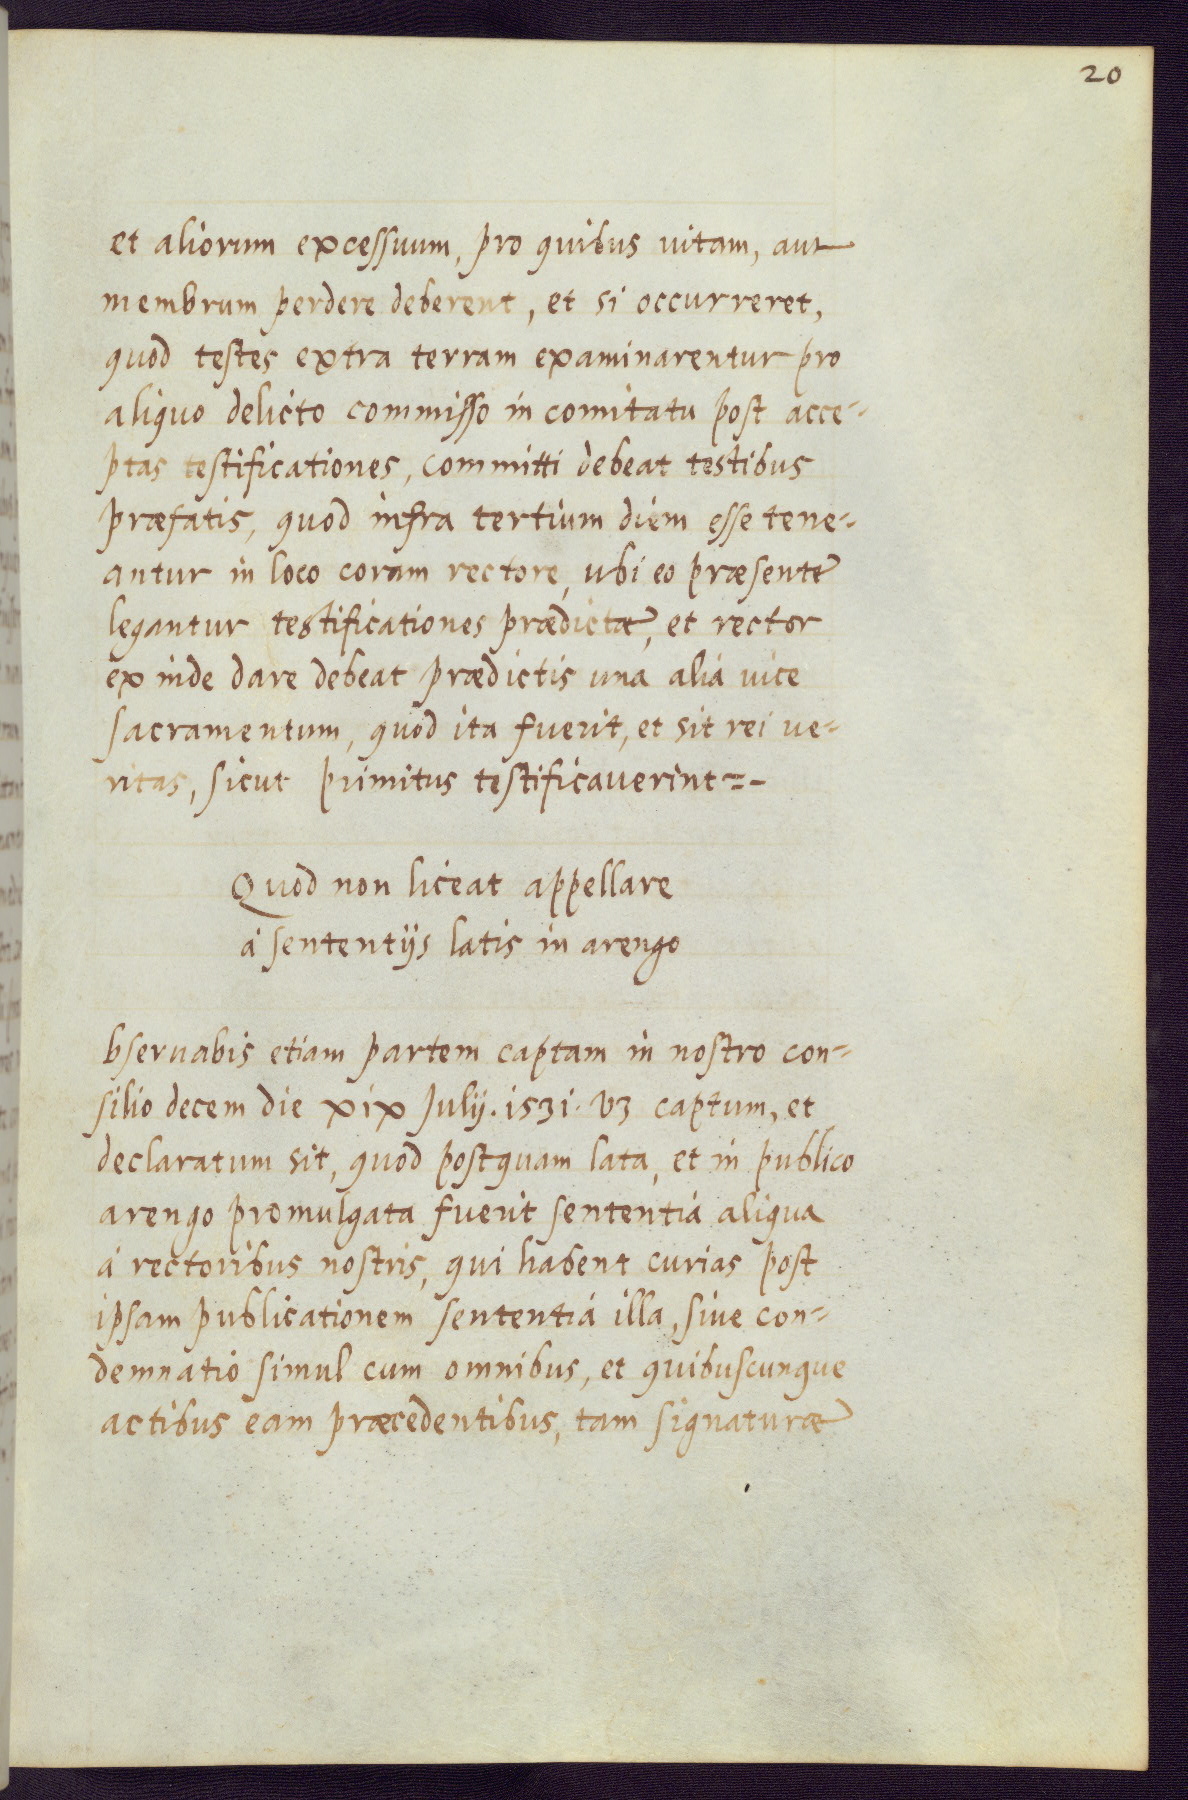 20
et aliorum excessuum, pro quibus uitam, aut
membrum perdere deberent, et si occurreret,
quod testes extra terram examinarentur pro
aliquo delicto commisso in comitatu post acce=
ptas testificationes, committi debeat testibus
præfatis, quod infra tertium diem esse tene=
antur in loco coram rectore, ubi eo præsente
legantur testificationes prædictæ, et rector
ex inde dare debeat prædictis una alia uice
sacramentum, quod ita fuerit, et sit rei ue=
ritas, sicut primitus testificauerint=-
Quod non liceat appellare
á sententijs latis in arengo
bseruabis etiam partem captam in nostro con=
silio decem die xix Julij. 1531. vz captum, et
declaratum sit, quod postquam lata, et in publico
arengo promulgata fuerit sententia aliqua
á rectoribus nostris, qui habent curias post
ipsam publicationem sententia illa, siue con=
demnatio simul cum omnibus, et quibuscunque
actibus eam præcedentibus, tam signaturæ